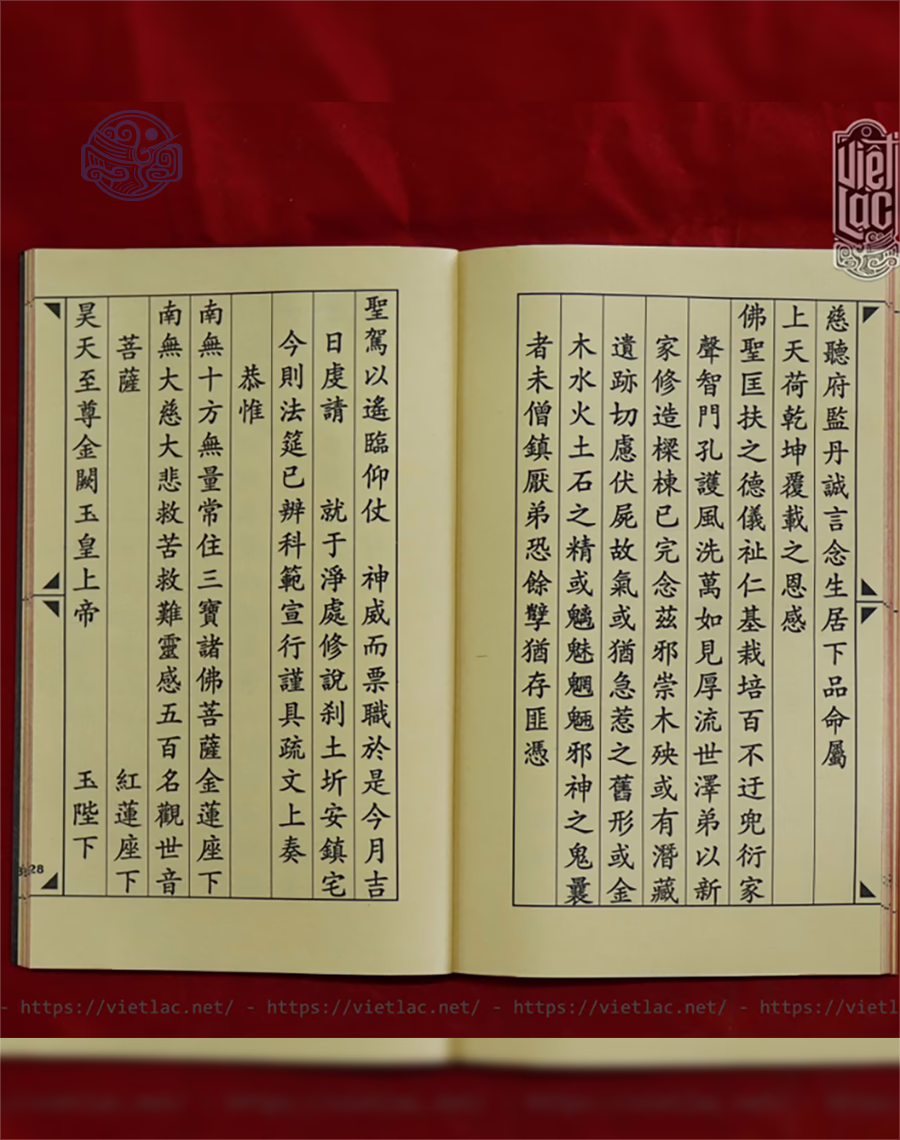 Việt
Lạc
慈聽府監丹誠言念生居下品命屬
上天荷乾坤覆載之恩感
佛聖匡扶之德儀祉仁基栽培百不迂兜衍家
聲智門孔護風洗萬如見厚流世澤弟以新
家修造樑棟已完念茲邪崇木殃或有潛藏
遺跡切慮伏屍故氣或猶急惹之舊形或金
木水火土石之精或魑魅魍魎邪神之鬼曩
者未僧鎮厭弟恐餘孽猶存匪憑
聖駕以遙臨仰仗 神威而票職於是今月吉
日虔請 就于淨處修說刹土圻安鎮宅
今則法筵已辨科範宣行謹具疏文上奏
恭惟
南無十方無量常住三寶諸佛菩薩金蓮座下
南無大慈大悲救苦救難靈感五百名觀世音
菩薩 紅蓮座下
昊天至尊金闕玉皇上帝 玉陛下
28
- https://vietlac.net/ - https://vietlac.net/ - https://vietlac.net/ - https://vietl